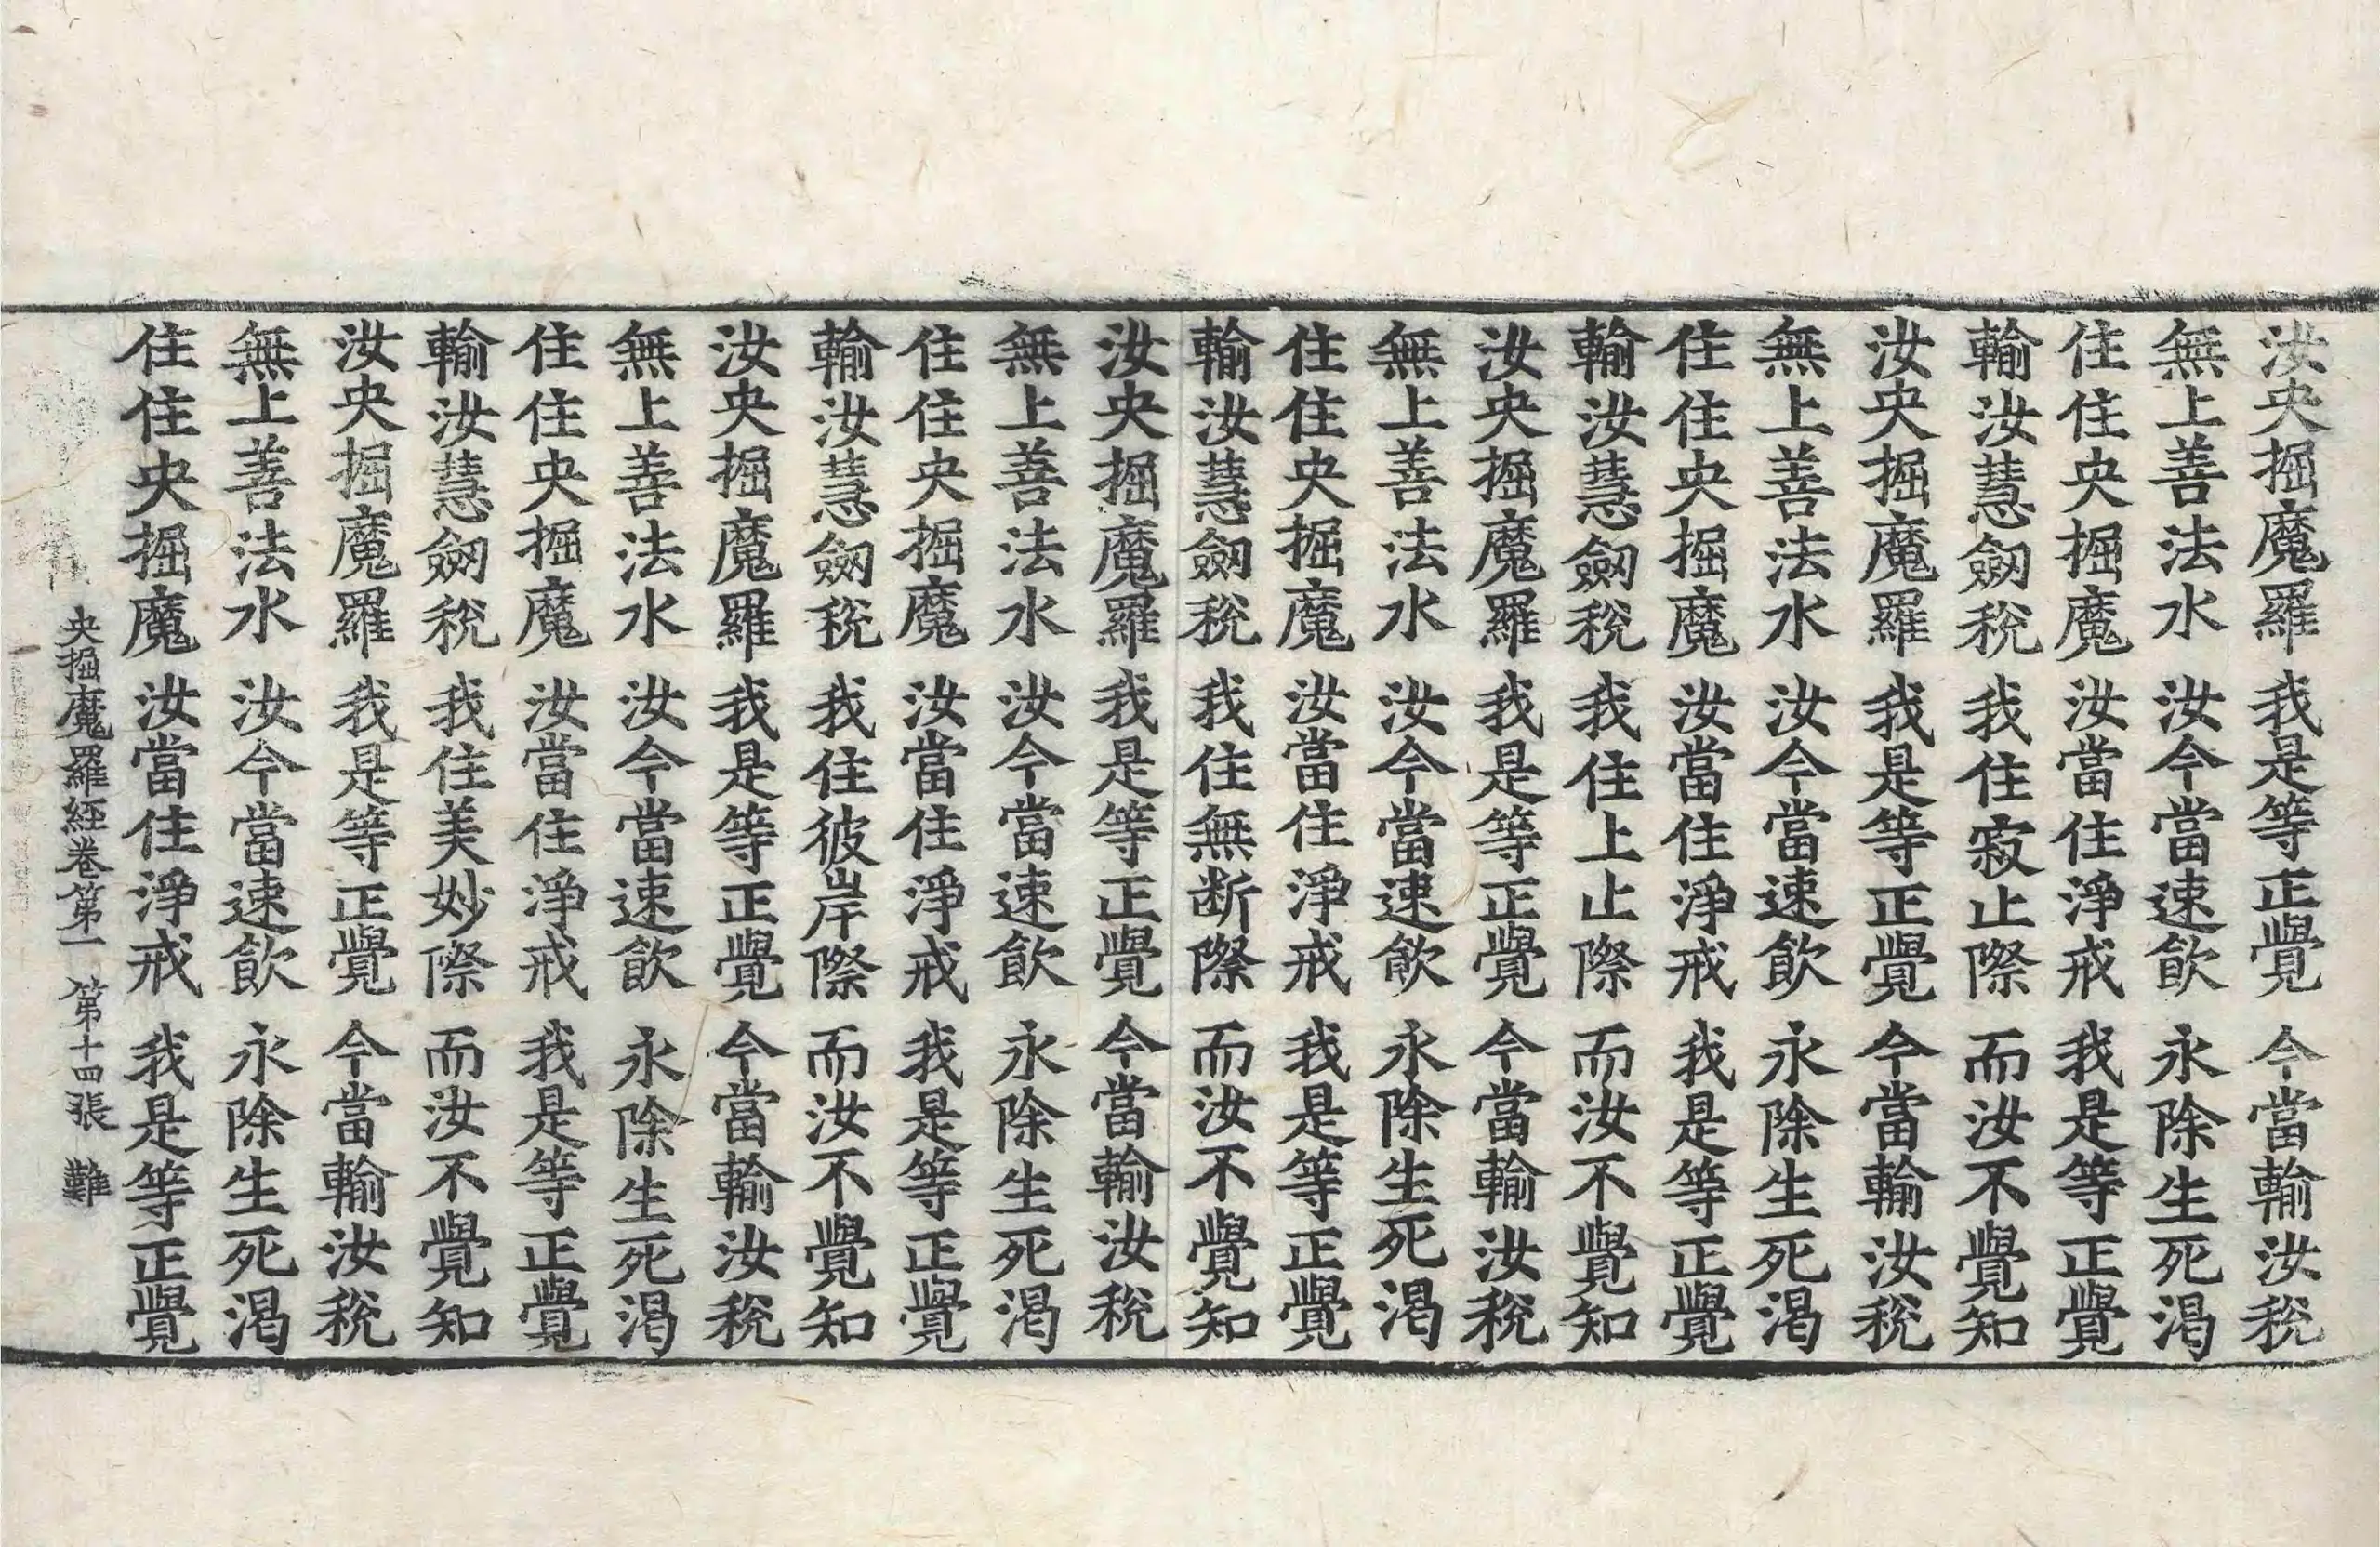 汝央掘魔羅 我是等正覺 今當輸汝稅
無上善法水 汝今當速飲 永除生死渴
住住央掘魔 汝當住淨戒 我是等正覺
輸汝慧劒稅 我住寂止際 而汝不覺知
汝央掘魔羅 我是等正覺 今當輸汝稅
無上善法水 汝今當速飲 永除生死渴
住住央掘魔 汝當住淨戒 我是等正覺
輸汝慧劒稅 我住上止際 而汝不覺知
汝央掘魔羅 我是等正覺 今當輸汝稅
無上善法水 汝今當速飲 永除生死渴
住住央掘魔 汝當住淨戒 我是等正覺
輸汝慧劒稅 我住無断際 而汝不覺知
汝央掘魔羅 我是等正覺 今當輸汝稅
無上善法水 汝今當速飲 永除生死渴
住住央掘魔 汝當住淨戒 我是等正覺
輸汝慧劒稅 我住彼岸際 而汝不覺知
汝央掘魔羅 我是等正覺 今當輸汝稅
無上善法水 汝今當速飲 永除生死渴
住住央掘魔 汝當住淨戒 我是等正覺
輸汝慧劒稅 我住美妙際 而汝不覺知
汝央掘魔羅 我是等正覺 今當輸汝稅
無上善法水 汝今當速飲 永除生死渴
住住央掘魔 汝當住淨戒 我是等正覺
央掘魔羅經卷第一 第十四張 難